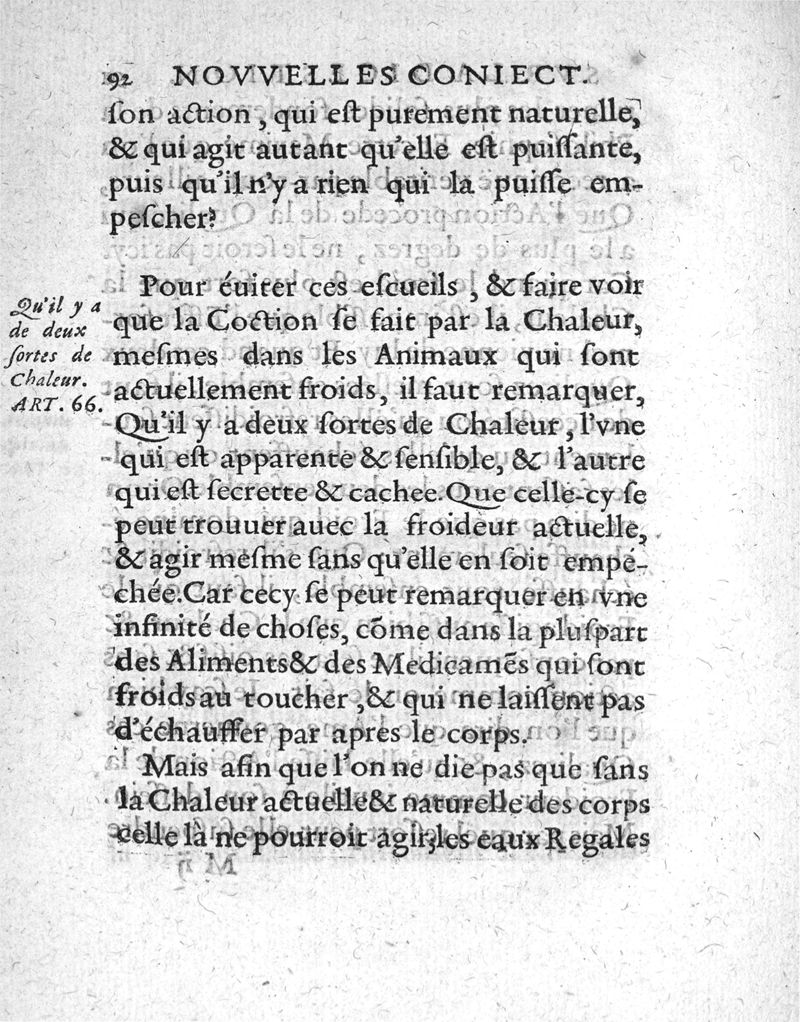 92 NOVVELLES CONIECT.
ſon action, qui eſt purement naturelle,
& qui agit autant qu'elle eſt puiſſante,
puis qu'il n'y a rien qui la puiſſe em-
peſcher?
Qu'il y a
de deux
ſortes de
Chaleur.
ART. 66.
Pour éuiter ces eſcueils, & faire voir
que la Coction ſe fait par la Chaleur,
meſmes dans les Animaux qui ſont
actuellement froids, il faut remarquer,
Qu'il y a deux ſortes de Chaleur, l'vne
qui eſt apparente & ſenſible, & l'autre
qui eſt ſecrette & cachee. Que celle-cy ſe
peut trouuer auec la froideur actuelle,
& agir meſme ſans qu'elle en ſoit empé-
chée. Car cecy ſe peut remarquer en vne
infinité de choſes, cōme dans la pluſpart
des Aliments & des Medicamēs qui ſont
froids au toucher, & qui ne laiſſent pas
d'échauffer par apres le corps.
Mais afin que l'on ne die pas que ſans
la Chaleur actuelle & naturelle des corps
celle là ne pourroit agir; les eaux Regales